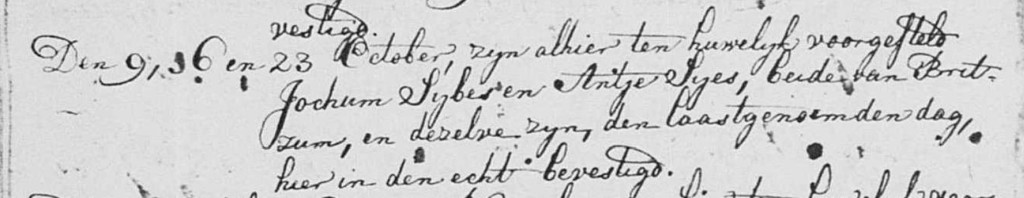 vestigd.
Den 9, 16 en 23 October, zyn alhier ten huwelyk voorgesteld
Jochum Sybes en Antje Syes, beide van Brit-
zum, en dezelve zyn, den laastgenoemden dag,
hier in den echt bevestigd.